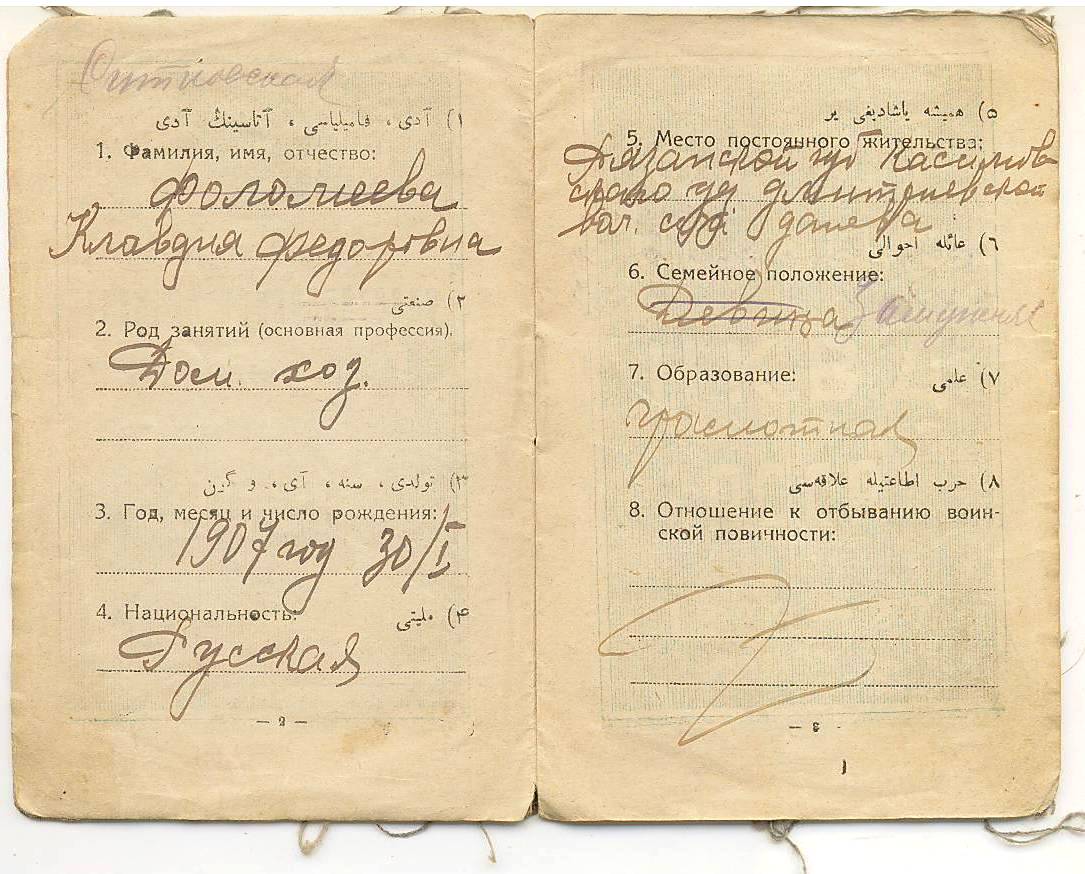 ۱) آدی ، فامیلیاسی ، آتاسینڭ آدی
1. Фамилия, имя, отчество:
Фоломеева
Клавдия Федоровна
۲) صنعتی
2. Род занятий (основная профессия).
Дом. хоз.
۳) تولدی ، سنه ، آی ، و گون
3. Год, месяц и число рождения:
1907 год 30/I
4. Национальность:
۴) ملیتی
Русская
— 2 —
۵) همیشه یاشادیغی یر
5. Место постоянного жительства:
Рязанской губ Касимов-
скаго уез Дмитриевской
вол.
۶) عائله احوالی
6. Семейное положение:
Девица Замужняя
7. Образование:
۷) علمی
Грамотная
۸) حرب اطاعتیله علاقه‌سی
8. Отношение к отбыванию воин-
ской повичности: